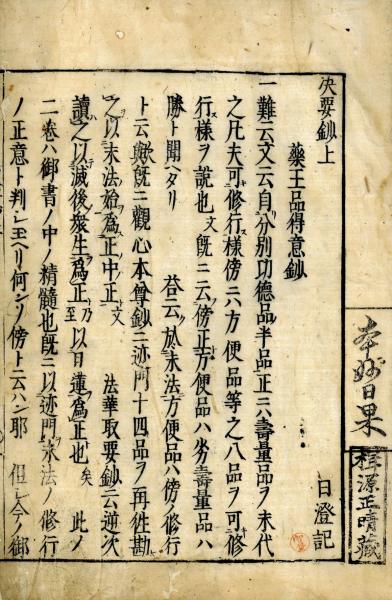 決要鈔上
藥王品得意鈔
日澄記
一難云文云自分別功德品半品正ニハ壽量品ヲ末代
之凡夫可修行ス樣傍ニハ方便品等之八品ヲ可修
行ス樣ヲ說也文既ニ云フ傍正方便品ハ劣壽量品ハ
勝ト聞ヘタリ 答云於末法方便品ハ傍ノ修行
ト云歟既ニ觀心本尊鈔ニ迹門十四品ヲ再徃勘
之以末法始爲正中ノ正ト文 法華取要鈔云逆次
讀之以滅後衆生爲正乃至以日蓮爲正也矣 此ノ
二卷ハ御書ノ中ノ精髓也既ニ以迹門末法ノ修行
ノ正意ト判シ玉ヘリ何ソリ傍ト云ハン耶 但シ今ノ御
本妙日果
梓源正晴藏